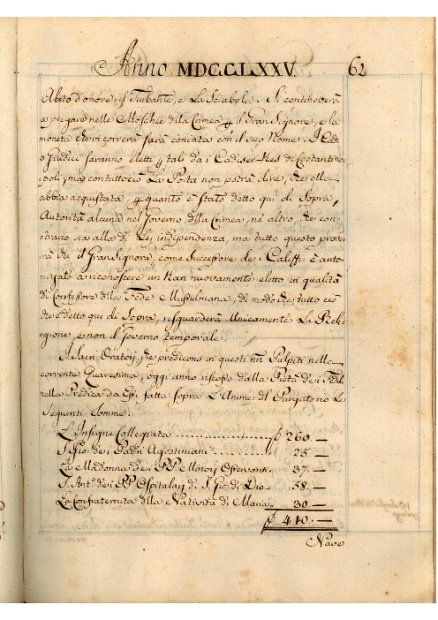 Anno MDCCLXXV. 62
Abito d'onore, il Turbante, e la Sciabola. Si continoverà
a pregare nelle Moschee della Crimea p il Gran Signore, e la
moneta che vi correrà sarà coniata con il suo Nome. I Cadì
o Giudici saranno eletti p tali da i Cadileskies di Costantino-
poli, ma contuttociò la Porta non potrà dire, che elle
abbia acquistata, p quanto è stato detto qui di sopra,
Autorità alcuna nel Governo della Crimea, nè altro, che con-
trario sia alla di Lei indipendenza, ma tutto questo prove-
rà che il Gran Signore, come Successore dei Califfi è auto-
rizzato a riconoscere un Kan nuovamente eletto in qualità
di Confessore della Fede Musulmana, di modo che tutto ciò
che è detto qui di Sopra, risguarderà Unicamente la Reli-
gione, e non il Governo temporale.
I Sacri Oratori, che predicono in questi nri Pulpiti nella
corrente Quaresima, oggi anno riscosso dalla Pietà dei Fedeli
nella Predica da Essi fatta sopra l'Anime del Purgatorio le
Seguenti Somme.
L'Insigne Collegiata £ 260.—
S. Gio: dei Padri Agostiniani 25.—
La Madonna dei PP. Minori Osservanti 37.—
S. Anto: dei PP Ospitalarj di S. Gio: di Dio 58.—
La Confraternita della Natività di Maria 30.—
£ 410.—
Nave